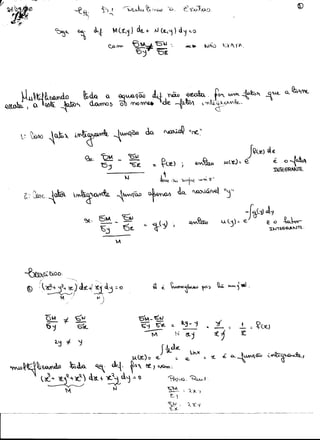 Eq. Dif. Redutíveis à Exatas
Seja eq dif M(x,y) dx + N(x,y) dy = 0
com ∂M/∂y ≠ ∂N/∂x : não exata
Multiplicando toda a equação dif não exata por um fator que a torne
exata, a este fator damos o nome de fator integrante.
1: Caso fator integrante função da variável "x"
Se ∂M/∂y - ∂N/∂x / N = P(x) ; então u(x) = e^∫P(x)dx é o fator
INTEGRANTE
2: Caso fator integrante função apenas da variável "y"
Se ∂M/∂y - ∂N/∂x / M = g(y), então u(y) = e^-∫g(y)dy é o fator
INTEGRANTE
① (x²+y²+x) dx + xy dy = 0
M N
∂M/∂y ≠ ∂N/∂x
2y ≠ y
∂M/∂y - ∂N/∂x / N = 2y-y / xy = y / xy = 1/x = P(x)
u(x) = e^∫1/x dx = e^Lnx = x é a função integrante,
multiplicando toda eq dif. por x, vem:
(x³ + xy² + x²) dx + x²y dy = 0
M N
∂M/∂y = 2xy
∂N/∂x = 2xy